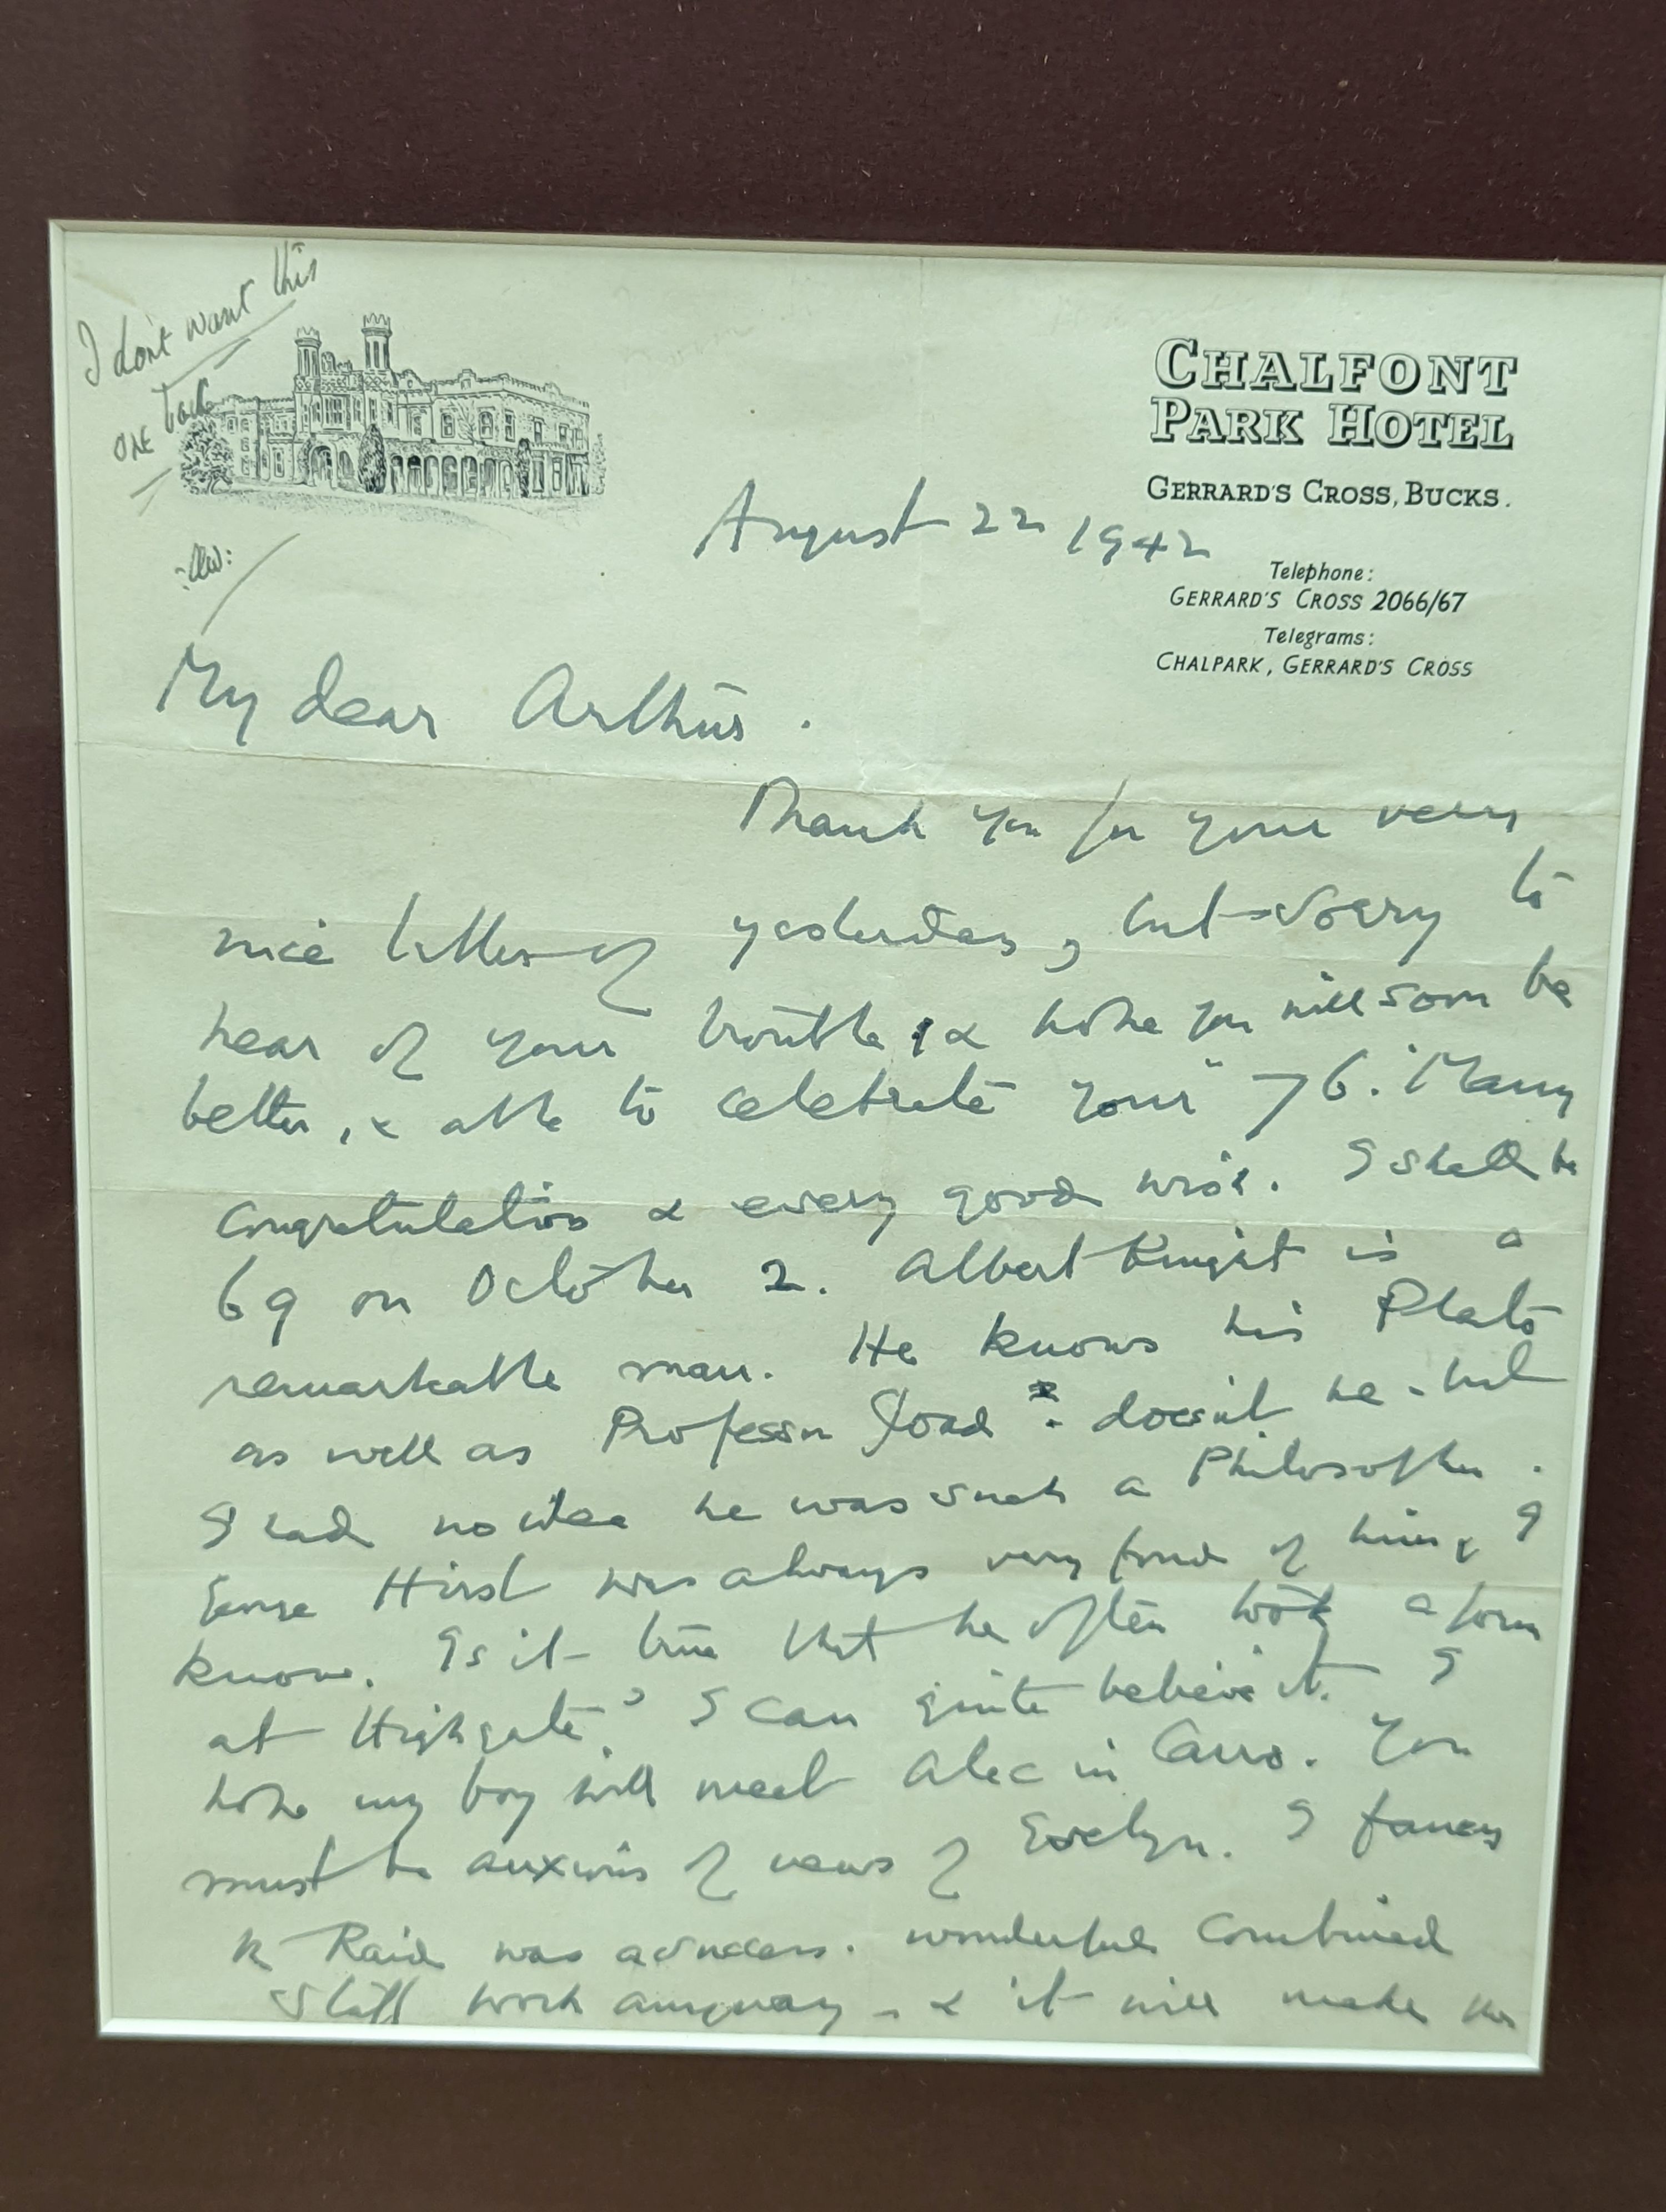 I don't want this
one back
CHALFONT
PARK HOTEL
GERRARD'S CROSS, BUCKS.
August 22 1942
Telephone:
GERRARD'S CROSS 2066/67
Telegrams:
CHALPARK, GERRARD'S CROSS
My dear Arthur.
Thank you for your very
nice letter of yesterday, but sorry to
hear of your trouble, & hope you will soon be
better, & able to celebrate your "76." Many
congratulations & every good wish. I shall be
69 on October 2. Albert Knight is a
remarkable man. He knows his Plato
as well as Professor Joad - doesn't he - but
I had no idea he was such a Philosopher.
George Hirst was always very fond of him, I
know. Is it true that he often took a form
at Highgate? I can quite believe it. I
hope my boy will meet Alec in Cairo. You
must be anxious of news of Evelyn. I fancy
the Raid was a success. wonderful combined
Staff work anyway - & it will make the